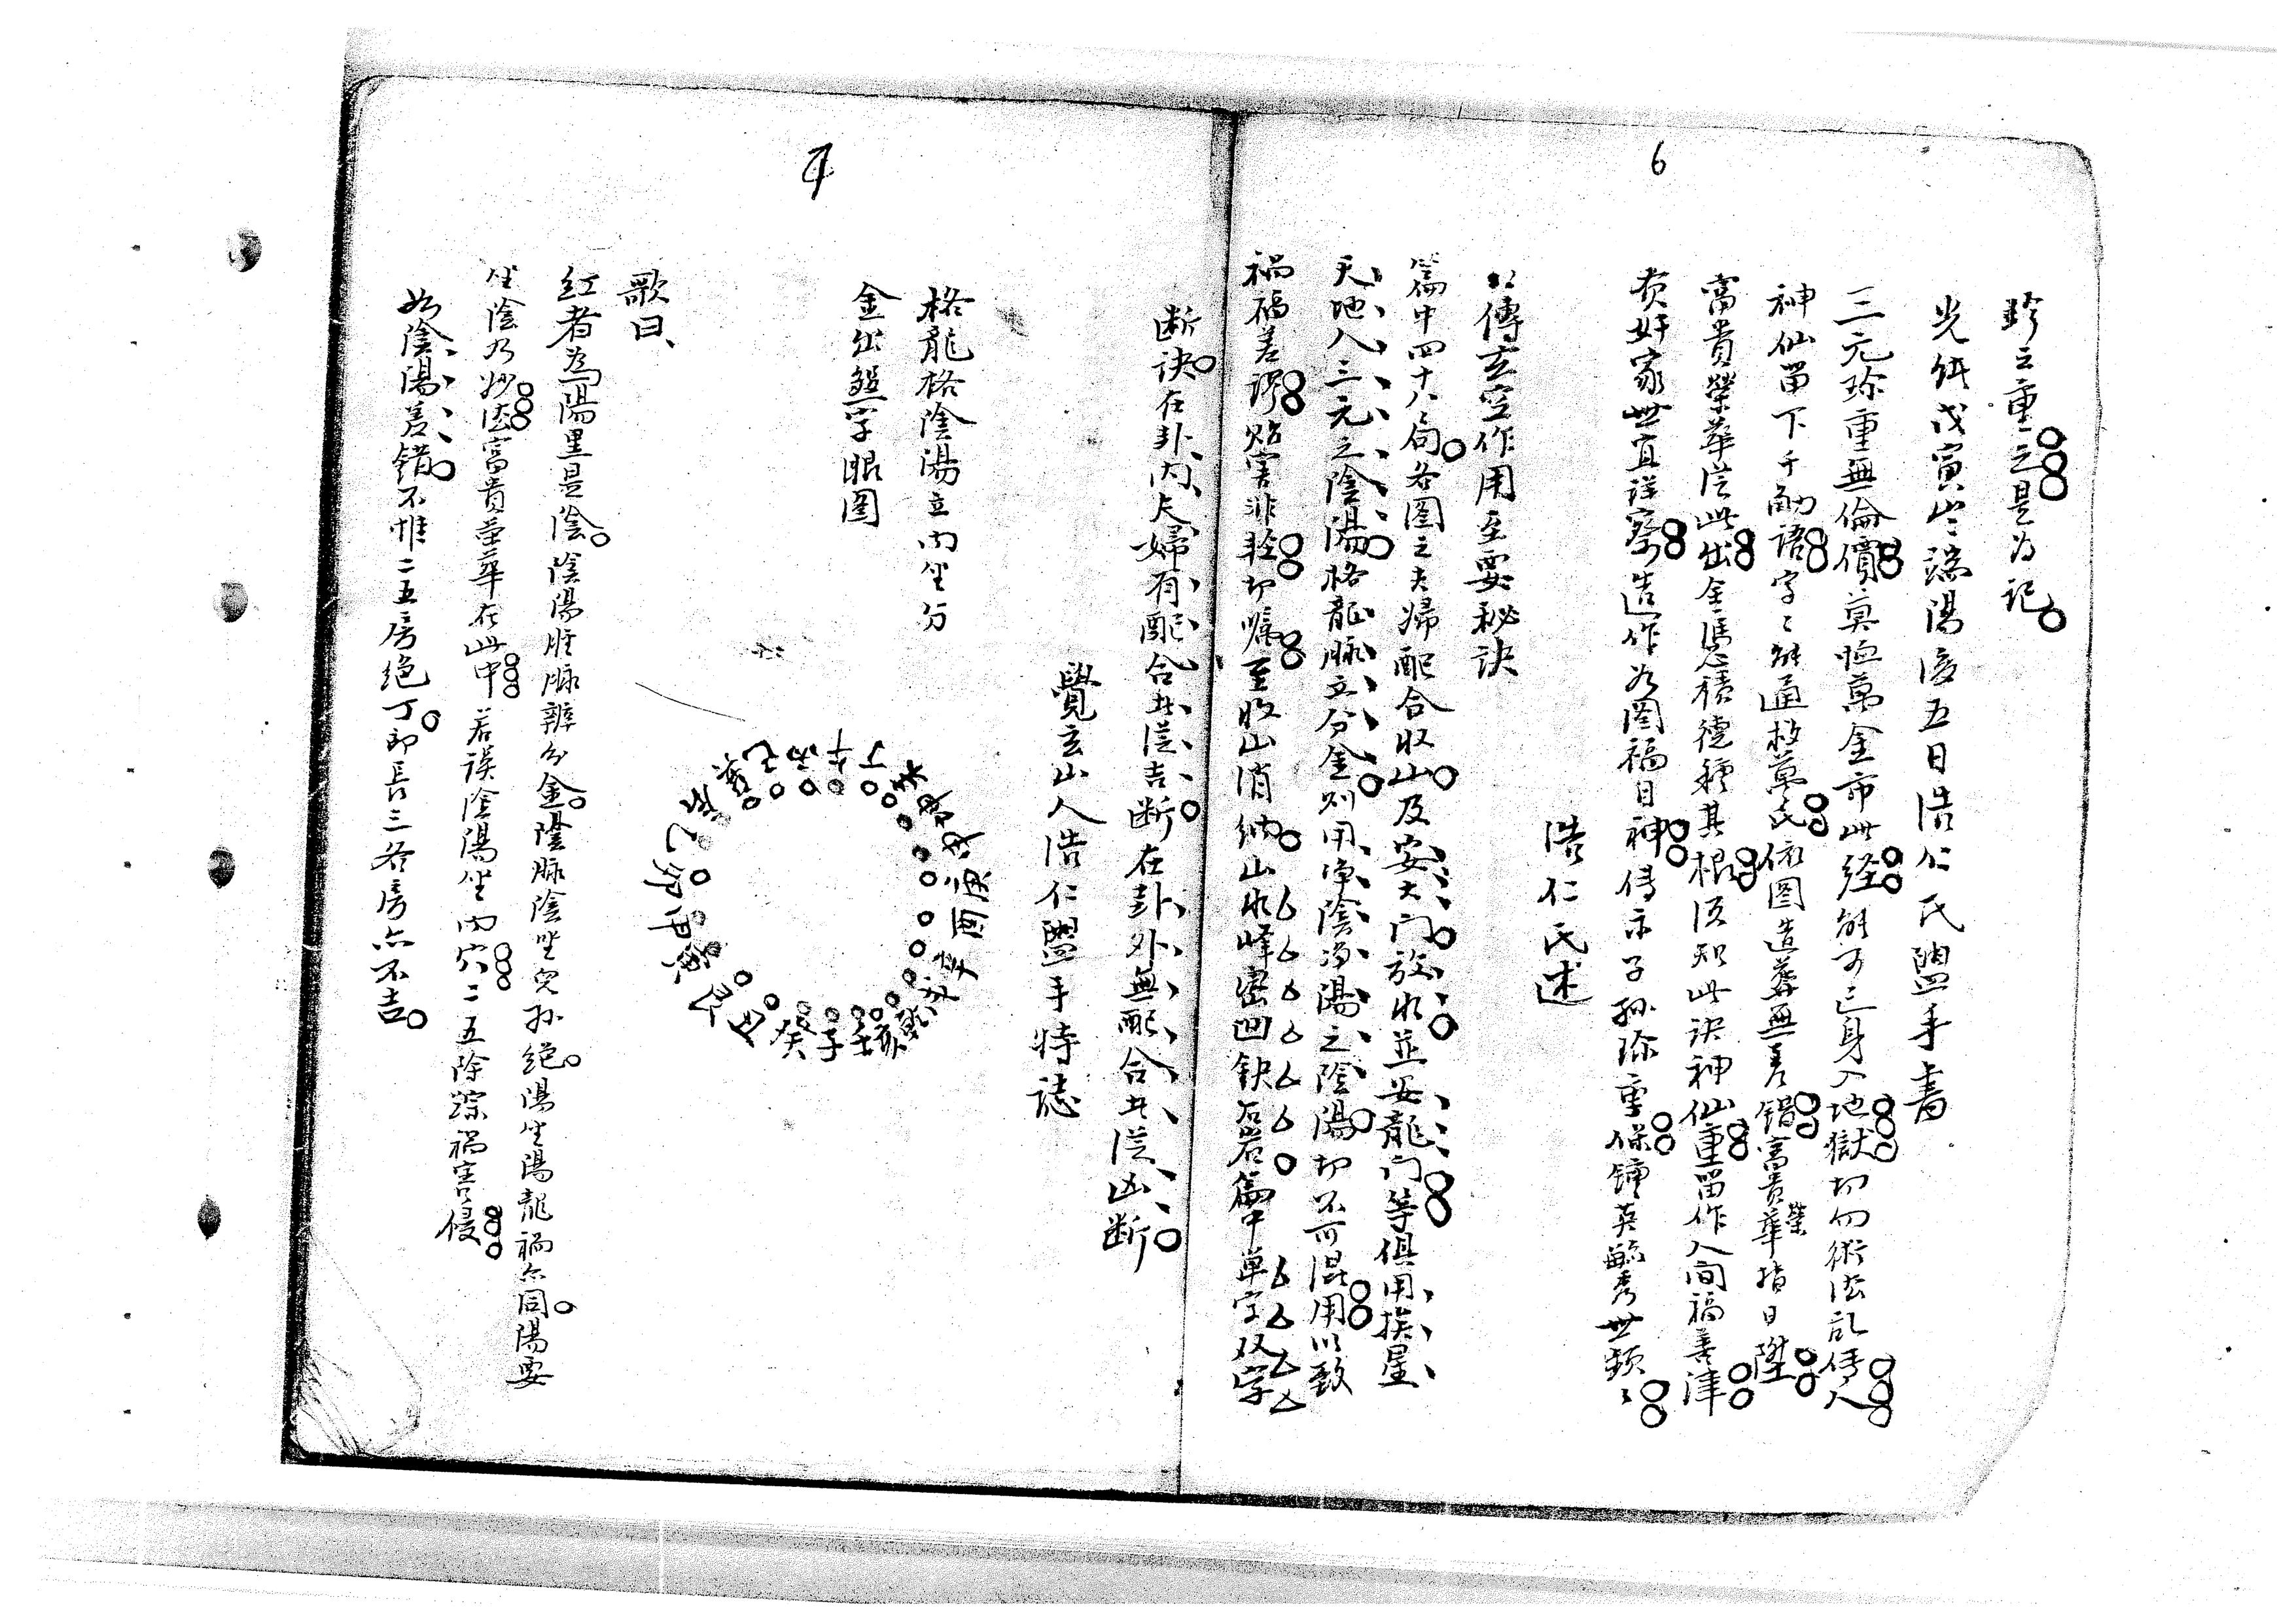 6
珍之重之是为記
光緒戊寅岁端陽后五日浩仁氏盥手書
三元珍重無倫價莫怛萬金市此経能可亡身入地獄切勿術法乱傳人
神仙留下千句語字〻能通救萬民依图造葬無差錯富貴榮華指日陞
富貴榮華従此出全憑積德種其根須知此訣神仙重留作人间福善津
奸家世宜詳察造作为圖福日神傳示子孫珍重保鍾英毓秀世顕〻
浩仁氏述
傳玄空作用至要秘訣
篇中四十八局各图之夫婦配合收山及安大门放水並安龍门等俱用挨星
天地人三元之陰陽格龍脉立分金则用净陰净陽之陰陽切不可混用以致
禍福差謬贻害非輕切嘱至收山消纳山水峰密凹缺石岩篇中单字双字
断訣在卦内夫婦有配合共従吉断在卦外無配合共従凶断
覺玄山人浩仁盥手特誌
7
格龍格陰陽立向坐分
金出盤字眼图
丁午丙巳
乙卯甲寅艮丑癸子壬亥乾戌辛酉庚申坤未
歌曰
紅者為陽黑是陰陰陽脉辨分金陰脉陰坐兒孙绝陽坐陽龍禍亦同陽要
坐陰乃妙法富貴荣華在此中若误陰陽坐向穴二五除踪禍害侵
如陰陽差錯不惟二五房绝丁即長三各房亦不吉